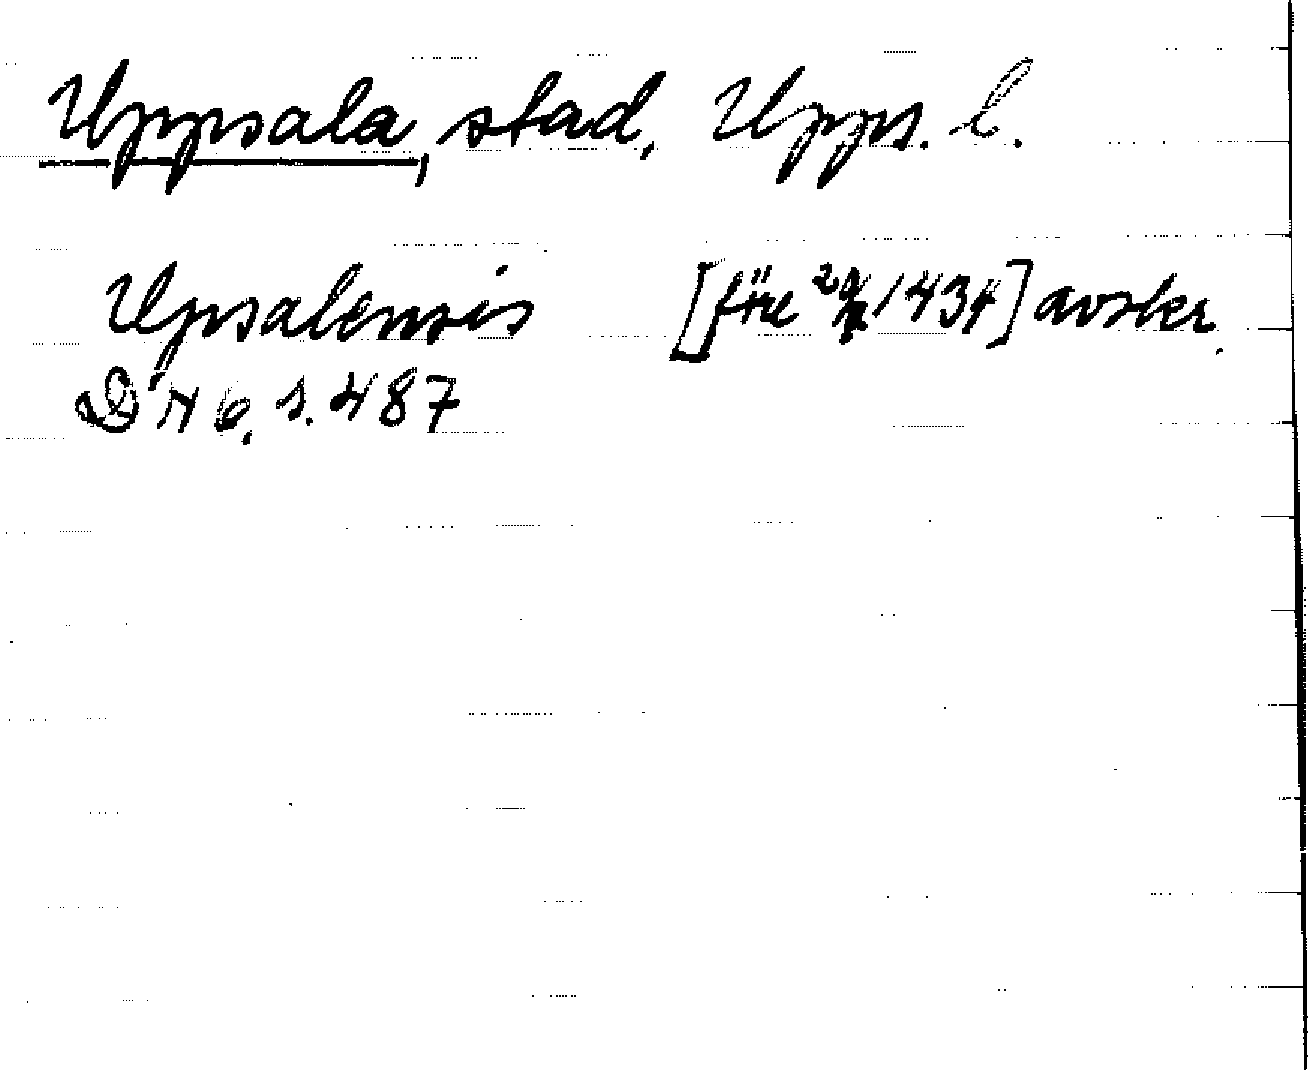 Uppsala, stad, Upps. l.
Upsalensis [före 29/1 1434] avskr.
DN 6, s. 487